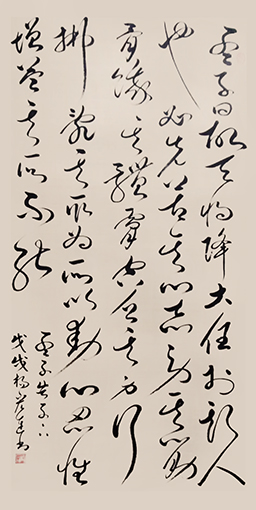 孟子曰故天將降大任於斯人
也必先苦其心志勞其筋
骨餓其體膚空乏其身行
拂亂其所為所以動心忍性
增益其所不能
孟子告子下
戊戌楊書